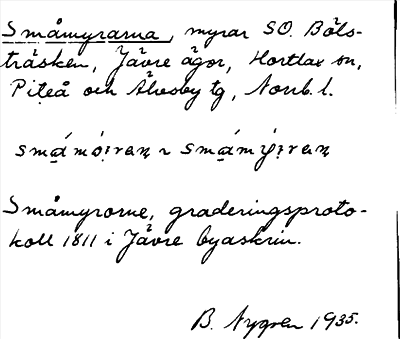 Småmyrarna, myrar SO. Böls-
träsken, Jävre ägor, Hortlax sn,
Piteå och Älvsby tg, Norrb. l.
Småmyrorne, graderingsproto-
koll 1811 i Jävre byaskrin.
B. Nygren 1935.